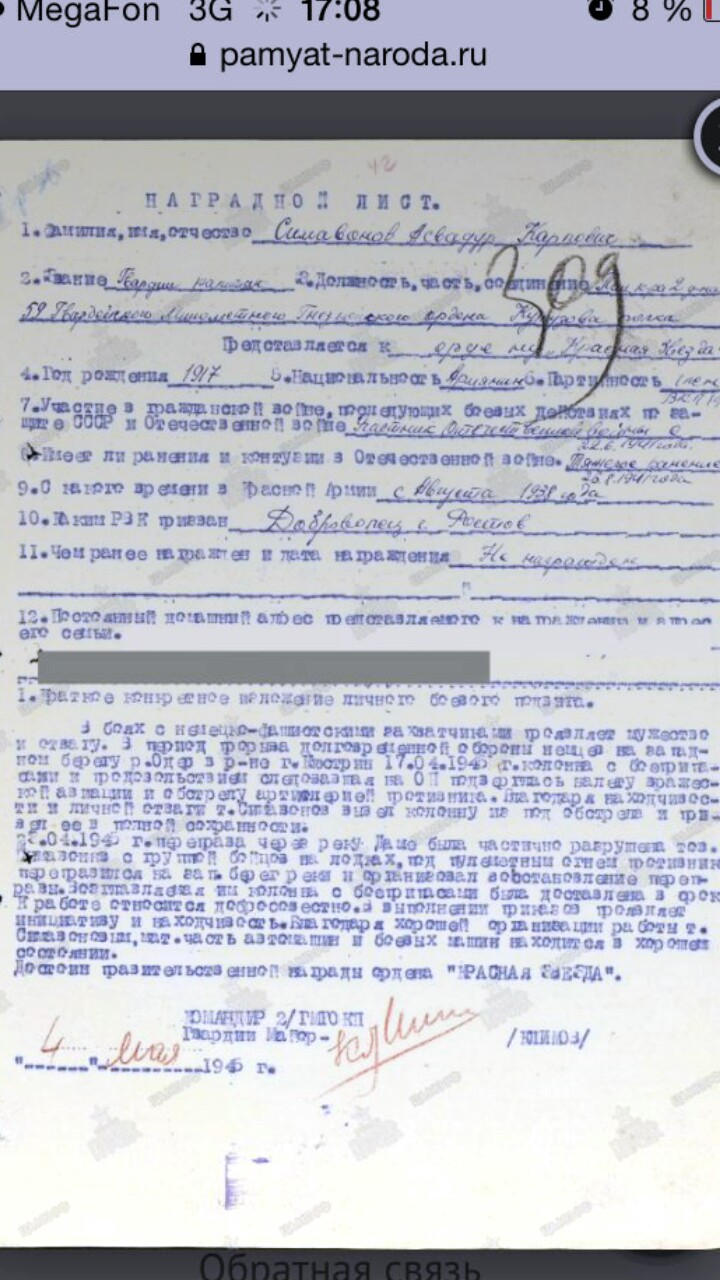 MegaFon 3G 17:08 8 %
pamyat-naroda.ru
42
НАГРАДНОЙ ЛИСТ.
1.Фамилия,имя,отчество Симавонов Асвадур Карпович
309
2.Звание Гвардии капитан 3.Должность,часть,соединение
59 Гвардейского Минометного ордена Кутузова полка
Представляется к ордену "Красная Звезда"
4.Год рождения 1917 5.Национальность Армянин 6.Партийность
7.Участие в гражданской войне,последующих боевых действиях по за-
щите СССР и Отечественной войне Участник Отечественной войны с
22.6.1941 года.
8.Имеет ли ранения и контузии в Отечественной войне. Тяжелое ранение
20.8.1941 года
9.С какого времени в Красной Армии с Августа 1938 года
10.Каким РВК призван Доброволец г. Ростов
11.Чем ранее награжден и дата награждения Не награжден
12.Постоянный домашний адрес представляемого к награждению и адрес
его семьи.
1.Краткое конкретное изложение личного боевого подвига.
В боях с немецко-фашистскими захватчиками проявляет мужество
и отвагу. В период прорыва долговременной обороны немцев на запад-
ном берегу р.Одер в р-не г.Кюстрин 17.04.1945 г.колонна с боеприпа-
сами и продовольствием следовавшая на ОП подверглась налету вражес-
кой авиации и обстрелу артилерией противника. Благодаря находчивос-
ти и личной отваги т.Симавонов вывел колонну из под обстрела и при-
вел ее в полной сохранности.
.04.1945 г. переправа через реку Даме была частично разрушена тов.
Симавонов с группой бойцов на лодках,под пулеметным огнем противника
переправился на зап. берег реки и организовал восстановление переп-
равы.Возглавляемая им колонна с боеприпасами была доставлена в срок
К работе относится добросовестно.В выполнении приказов проявляет
инициативу и находчивость.Благодаря хорошей организации работы т.
Симавоновым,мат.часть автомашин и боевых машин находится в хорошем
состоянии.
Достоин правительственной награды ордена "КРАСНАЯ ЗВЕЗДА".
КОМАНДИР 2/
Гвардии Майор- /КЛИМОВ/
"4" мая 1945 г.
Обратная связь